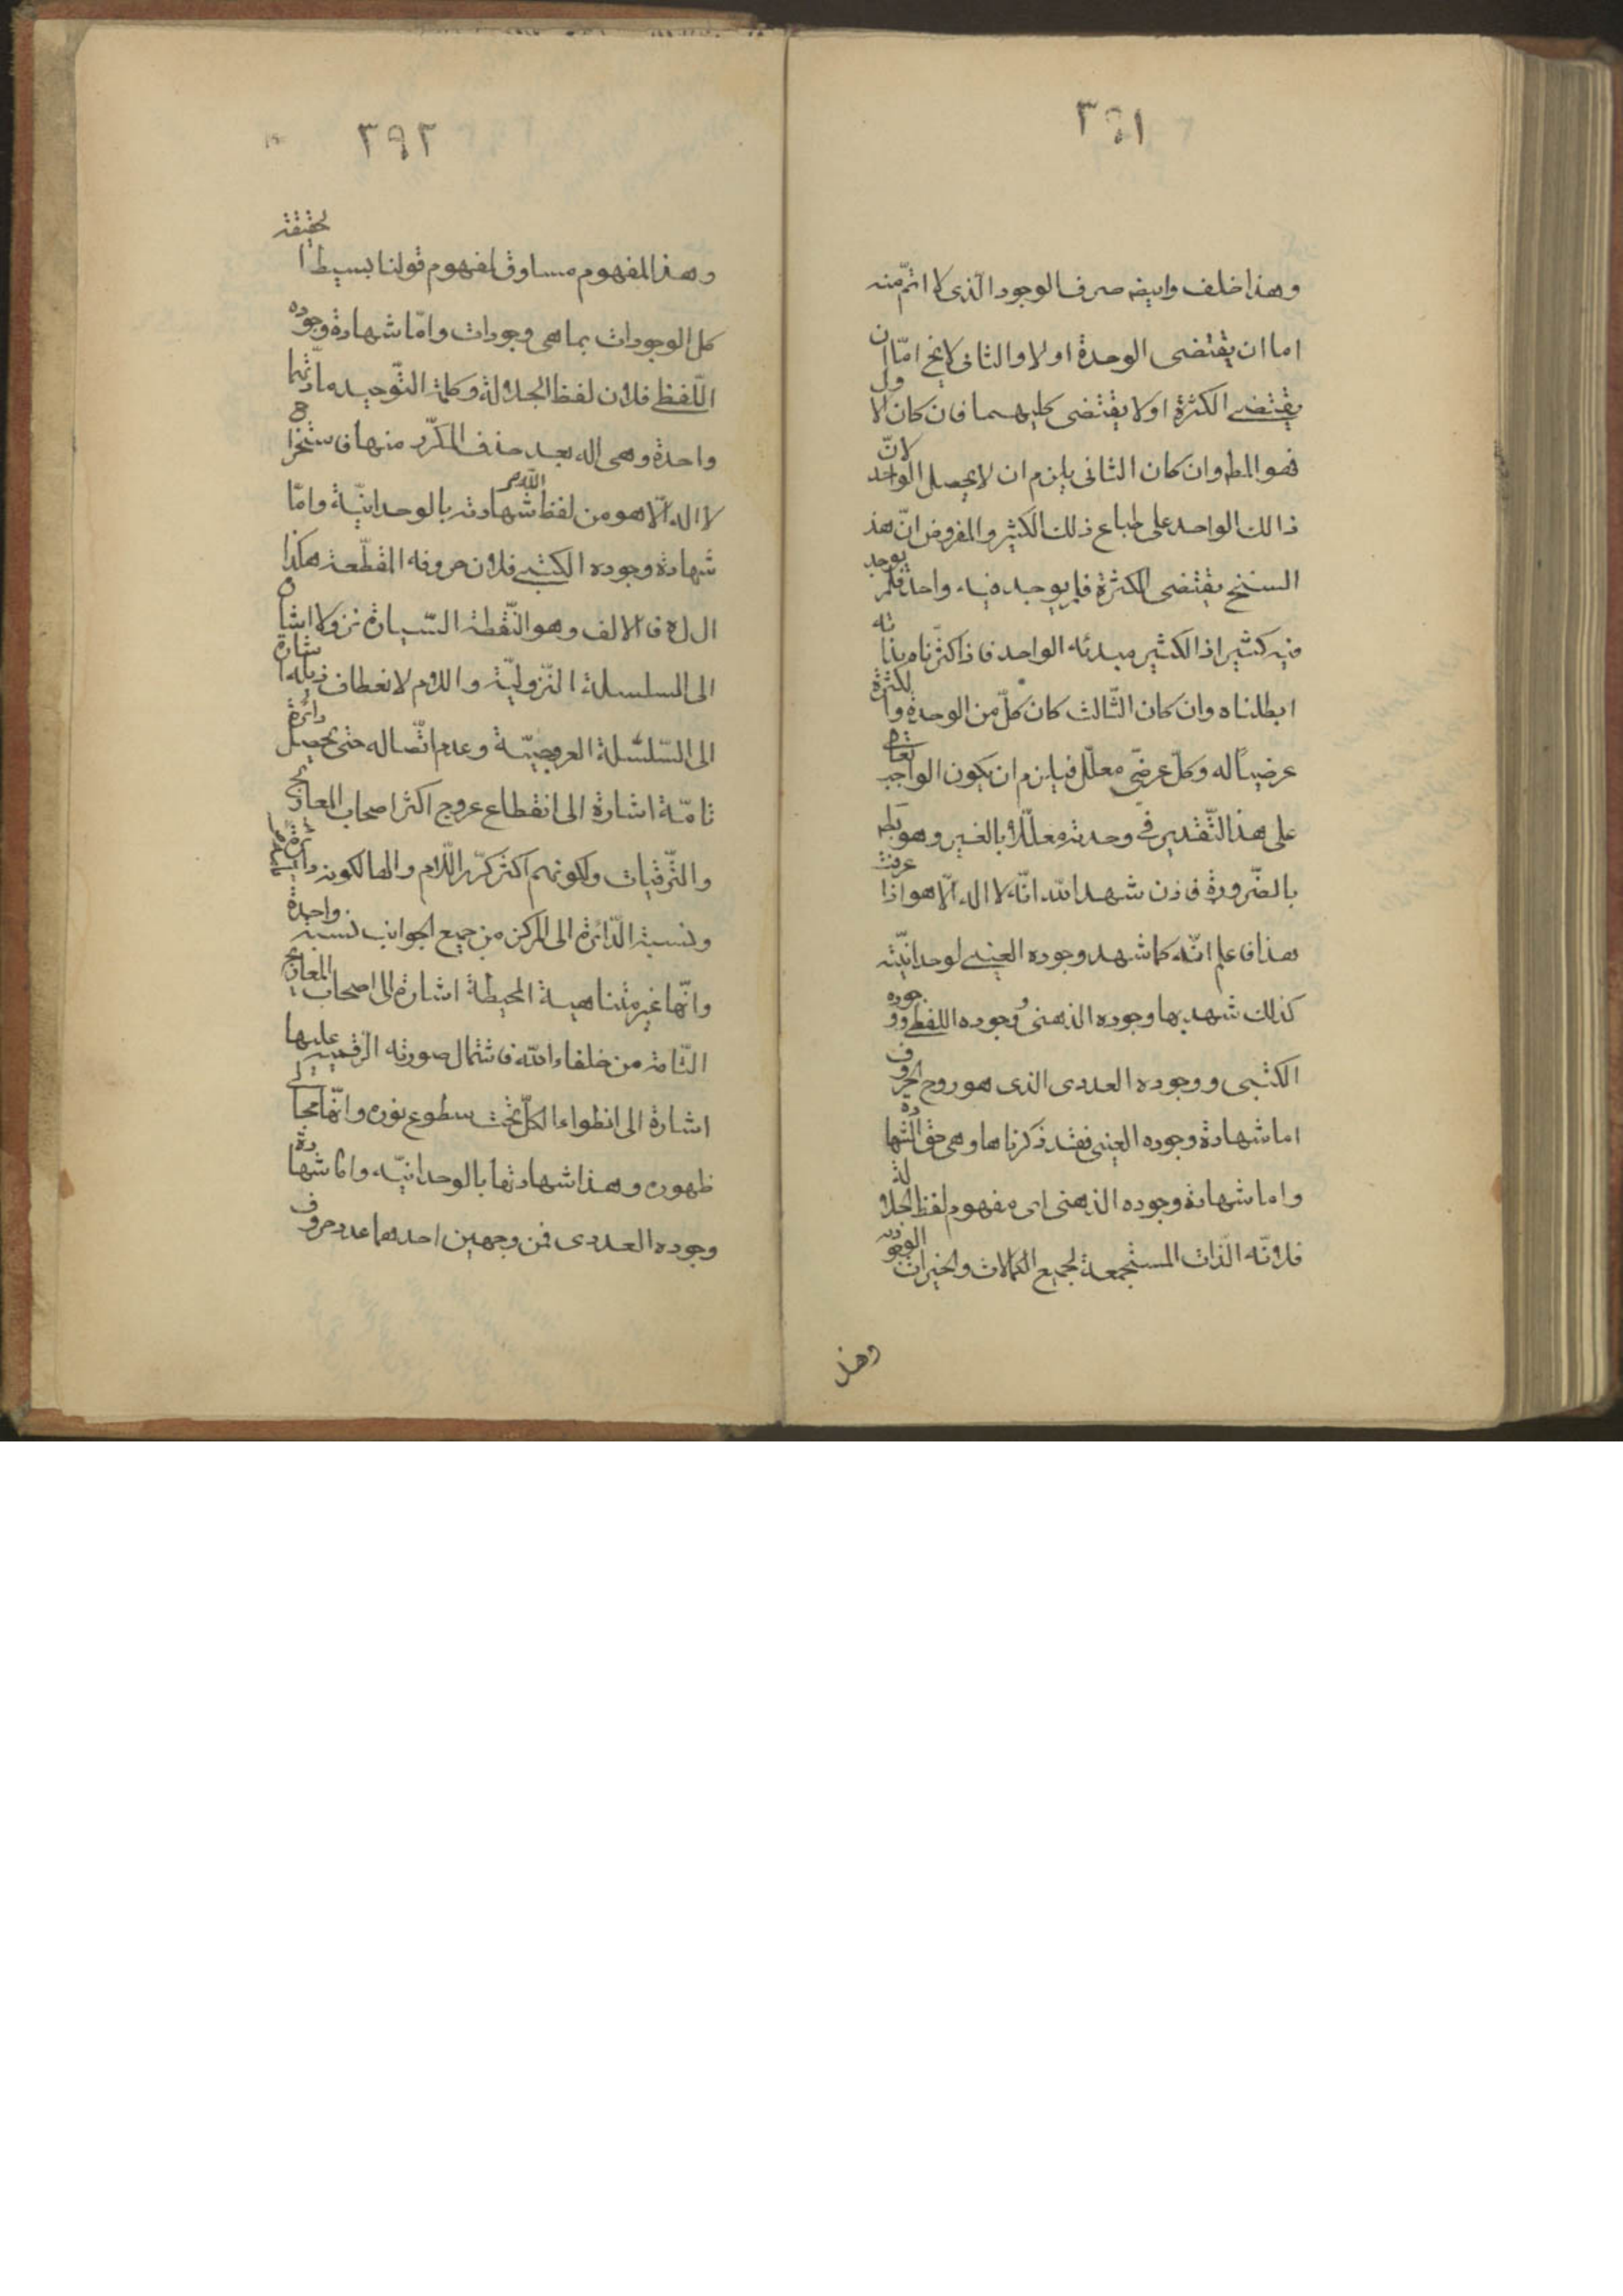 ٣٩١
وهذا خلف وايضا صرف الوجود الذى لا اتمّ منه
اما ان يقتضى الوحدة اولا والثانى لايخ امّا ان
يقتضى الكثرة او لا يقتضى كليهما فان كان الاول
فهو المط وان كان الثانى يلزم ان لا يحصل الواحد لانّ
ذالك الواحد على طباع ذلك الكثير والمفروض انّ هذ
السنخ يقتضى الكثرة فلم يوجد فيه واحد فلم يوجد
فيه كثير اذ الكثير مبدئه الواحد فاذا كثرناه بذاته
ابطلناه وان كان الثّالث كان كلّ من الوحدة والكثرة
عرضيّاً له وكلّ عرضىّ معلّل فيلزم ان يكون الواجب تعالى
على هذا التّقدير فى وحدته معلّلاً بالغير وهو بط
بالضّرورة فاذن شهد الله انّه لا اله الّا هو اذا عرفت
هذا فاعلم انّه كما شهد وجوده العينى لوحدانيّته
كذلك شهد بها وجوده الذهنى ووجوده اللفظى ووجوده
الكتبى ووجوده العددى الذى هو روح الحروف
اما شهادة وجوده العينى فقد ذكرناها وهى حق الشهادة
واما شهادة وجوده الذهنى اى مفهوم لفظ الجلالة
فلانّه الذّات المستجمعة لجميع الكمالات والخيرات الوجوديه
وهذ
٣٩٢
وهذ المفهوم مساوق لمفهوم قولنا بسيط الحقيقة
كل الوجودات بما هى وجودات وامّا شهادة وجوده
اللّفظى فلان لفظ الجلالة وكلمة التّوحيد مادّتهما
واحدة وهى اله بعد حذف المكرّر منها فاستخراج
لا اله الّا هو من لفظ اللّه شهادته بالوحدانيّة وامّا
شهادة وجوده الكتبى فلان حروفه المقطّعة هكذا
ا ل ل ه فالالف وهو النّقطة السّيارة نزولا اشارة
الى السلسلة النّزوليّة واللام لانعطاف ذيله اشارة
الى السّلسلة العروجيّة وعدم اتّصاله حتى يحصل دائرة
تامّة اشارة الى انقطاع عروج اكثر اصحاب المعارج
والتّرقيات ولكونهم اكثر كرّر اللّام والها لكونه دائرة
ونسبة الدّائرة الى المركز من جميع الجوانب نسبة واحدة
وانّها غير متناهية المحيطة اشارة الى اصحاب المعارج
التّامة من خلفاء الله فاشتمال صورته الرّقميه عليها
اشارة الى انطواء الكلّ تحت سطوع نوره وانّها مجالى
ظهوره وهذا شهادتها بالوحدانيّه واما شهادة
وجوده العددى فمن وجهين احدهما عدد حروف